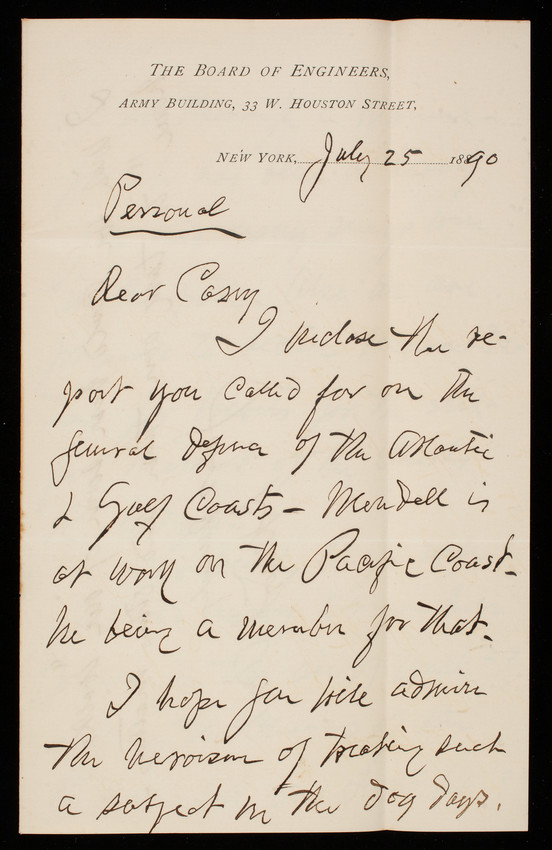 THE BOARD OF ENGINEERS,
ARMY BUILDING, 33 W. HOUSTON STREET,
NEW YORK, July 25 1890
Personal
Dear Casey
I inclose the re-
port you called for on the
general defence of the Atlantic
& Gulf Coasts - Mendell is
at work on the Pacific Coast -
he being a member for that.
I hope you will admire
the heroism of treating such
a subject in the dog days.